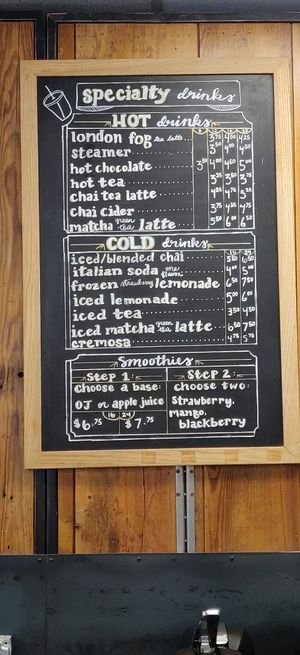 specialty drinks
HOT drinks
london fog tea latte 3.75 4.00 4.25
steamer 3.50 4.00 4.50
hot chocolate 3.50 4.00 4.50 5.00
hot tea 3.25 3.50 3.75
chai tea latte 4.25 4.75 5.25
chai cider 3.75 4.25 4.75
matcha green tea latte 5.50 6.00 6.50
COLD drinks
16 24
iced/blended chai 5.50 6.50
italian soda one flavor 4.00 5.00
frozen strawberry lemonade 6.50 7.50
iced lemonade 5.00 6.00
iced tea 3.50 4.50
iced matcha green tea latte 6.50 7.50
cremosa 4.75 5.75
Smoothies
Step 1: Step 2:
choose a base: choose two:
OJ or apple juice strawberry,
16 24 mango,
$6.75 $7.75 blackberry